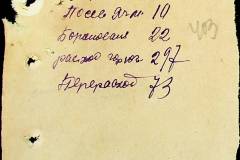 Посев Ячм 10
Боронование 22
расход горюч 297
Перерасход 73
403